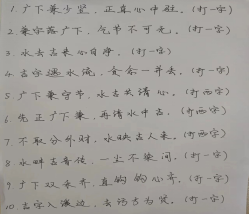 1. 广下兼少坚，正直心中驻。(打一字)
2. 兼字落广下，气节不可无。(打一字)
3. 水去古来心自净。(打一字)
4. 吉字逐水流，贪念一并丢。(打一字)
5. 广下兼守节，水去古清心。(打两字)
6. 先正广下兼，再清水中古。(打两字)
7. 不取分外财，水映古人来。(打两字)
8. 水畔古音传，一尘不染间。(打一字)
9. 广下双禾齐，直的心亮。(打一字)
10. 古字入激边，去污古为贤。(打一字)